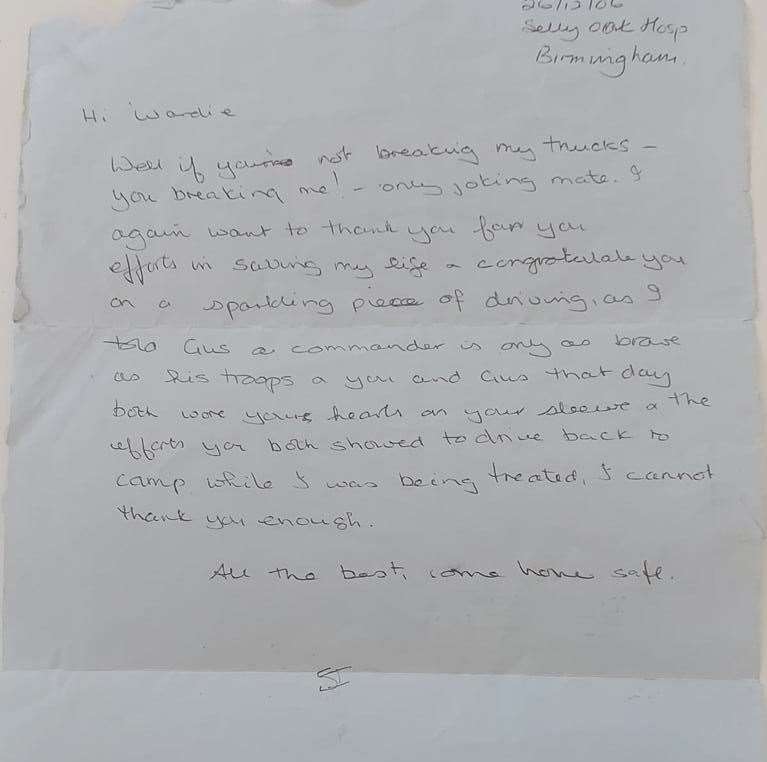 26/12/06
Selly Oak Hosp
Birmingham.
Hi Wardie
Well if your not breaking my trucks -
you breaking me! - only joking mate. I
again want to thank you for you
efforts in saving my life & congratulate you
on a sparkling piece of driving, as I
told Gus a commander is only as brave
as his troops & you and Gus that day
both wore yours hearts on your sleeve & the
efforts you both showed to drive back to
camp while I was being treated, I cannot
thank you enough.
All the best, come home safe.